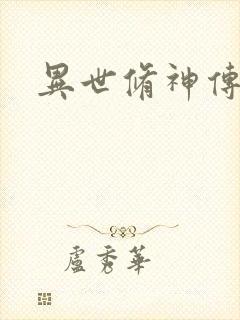 異世脩神傳
盧秀華